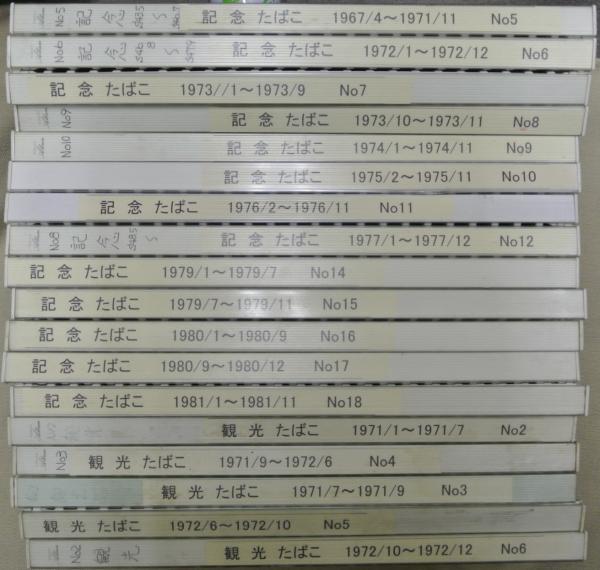 No5 記念 S43.5 記念 たばこ 1967/4～1971/11 No5
No6 記念 S46.8 ～ S47.9 記念 たばこ 1972/1～1972/12 No6
記念 たばこ 1973//1～1973/9 No7
No9 記念 たばこ 1973/10～1973/11 No8
No10 記念 たばこ 1974/1～1974/11 No9
記念 たばこ 1975/2～1975/11 No10
記念 たばこ 1976/2～1976/11 No11
No8 記念 S48.5 ～ 記念 たばこ 1977/1～1977/12 No12
記念 たばこ 1979/1～1979/7 No14
記念 たばこ 1979/7～1979/11 No15
記念 たばこ 1980/1～1980/9 No16
記念 たばこ 1980/9～1980/12 No17
記念 たばこ 1981/1～1981/11 No18
観光 たばこ 1971/1～1971/7 No2
No3 観光 たばこ 1971/9～1972/6 No4
観光 たばこ 1971/7～1971/9 No3
観光 たばこ 1972/6～1972/10 No5
No2 観光 観光 たばこ 1972/10～1972/12 No6